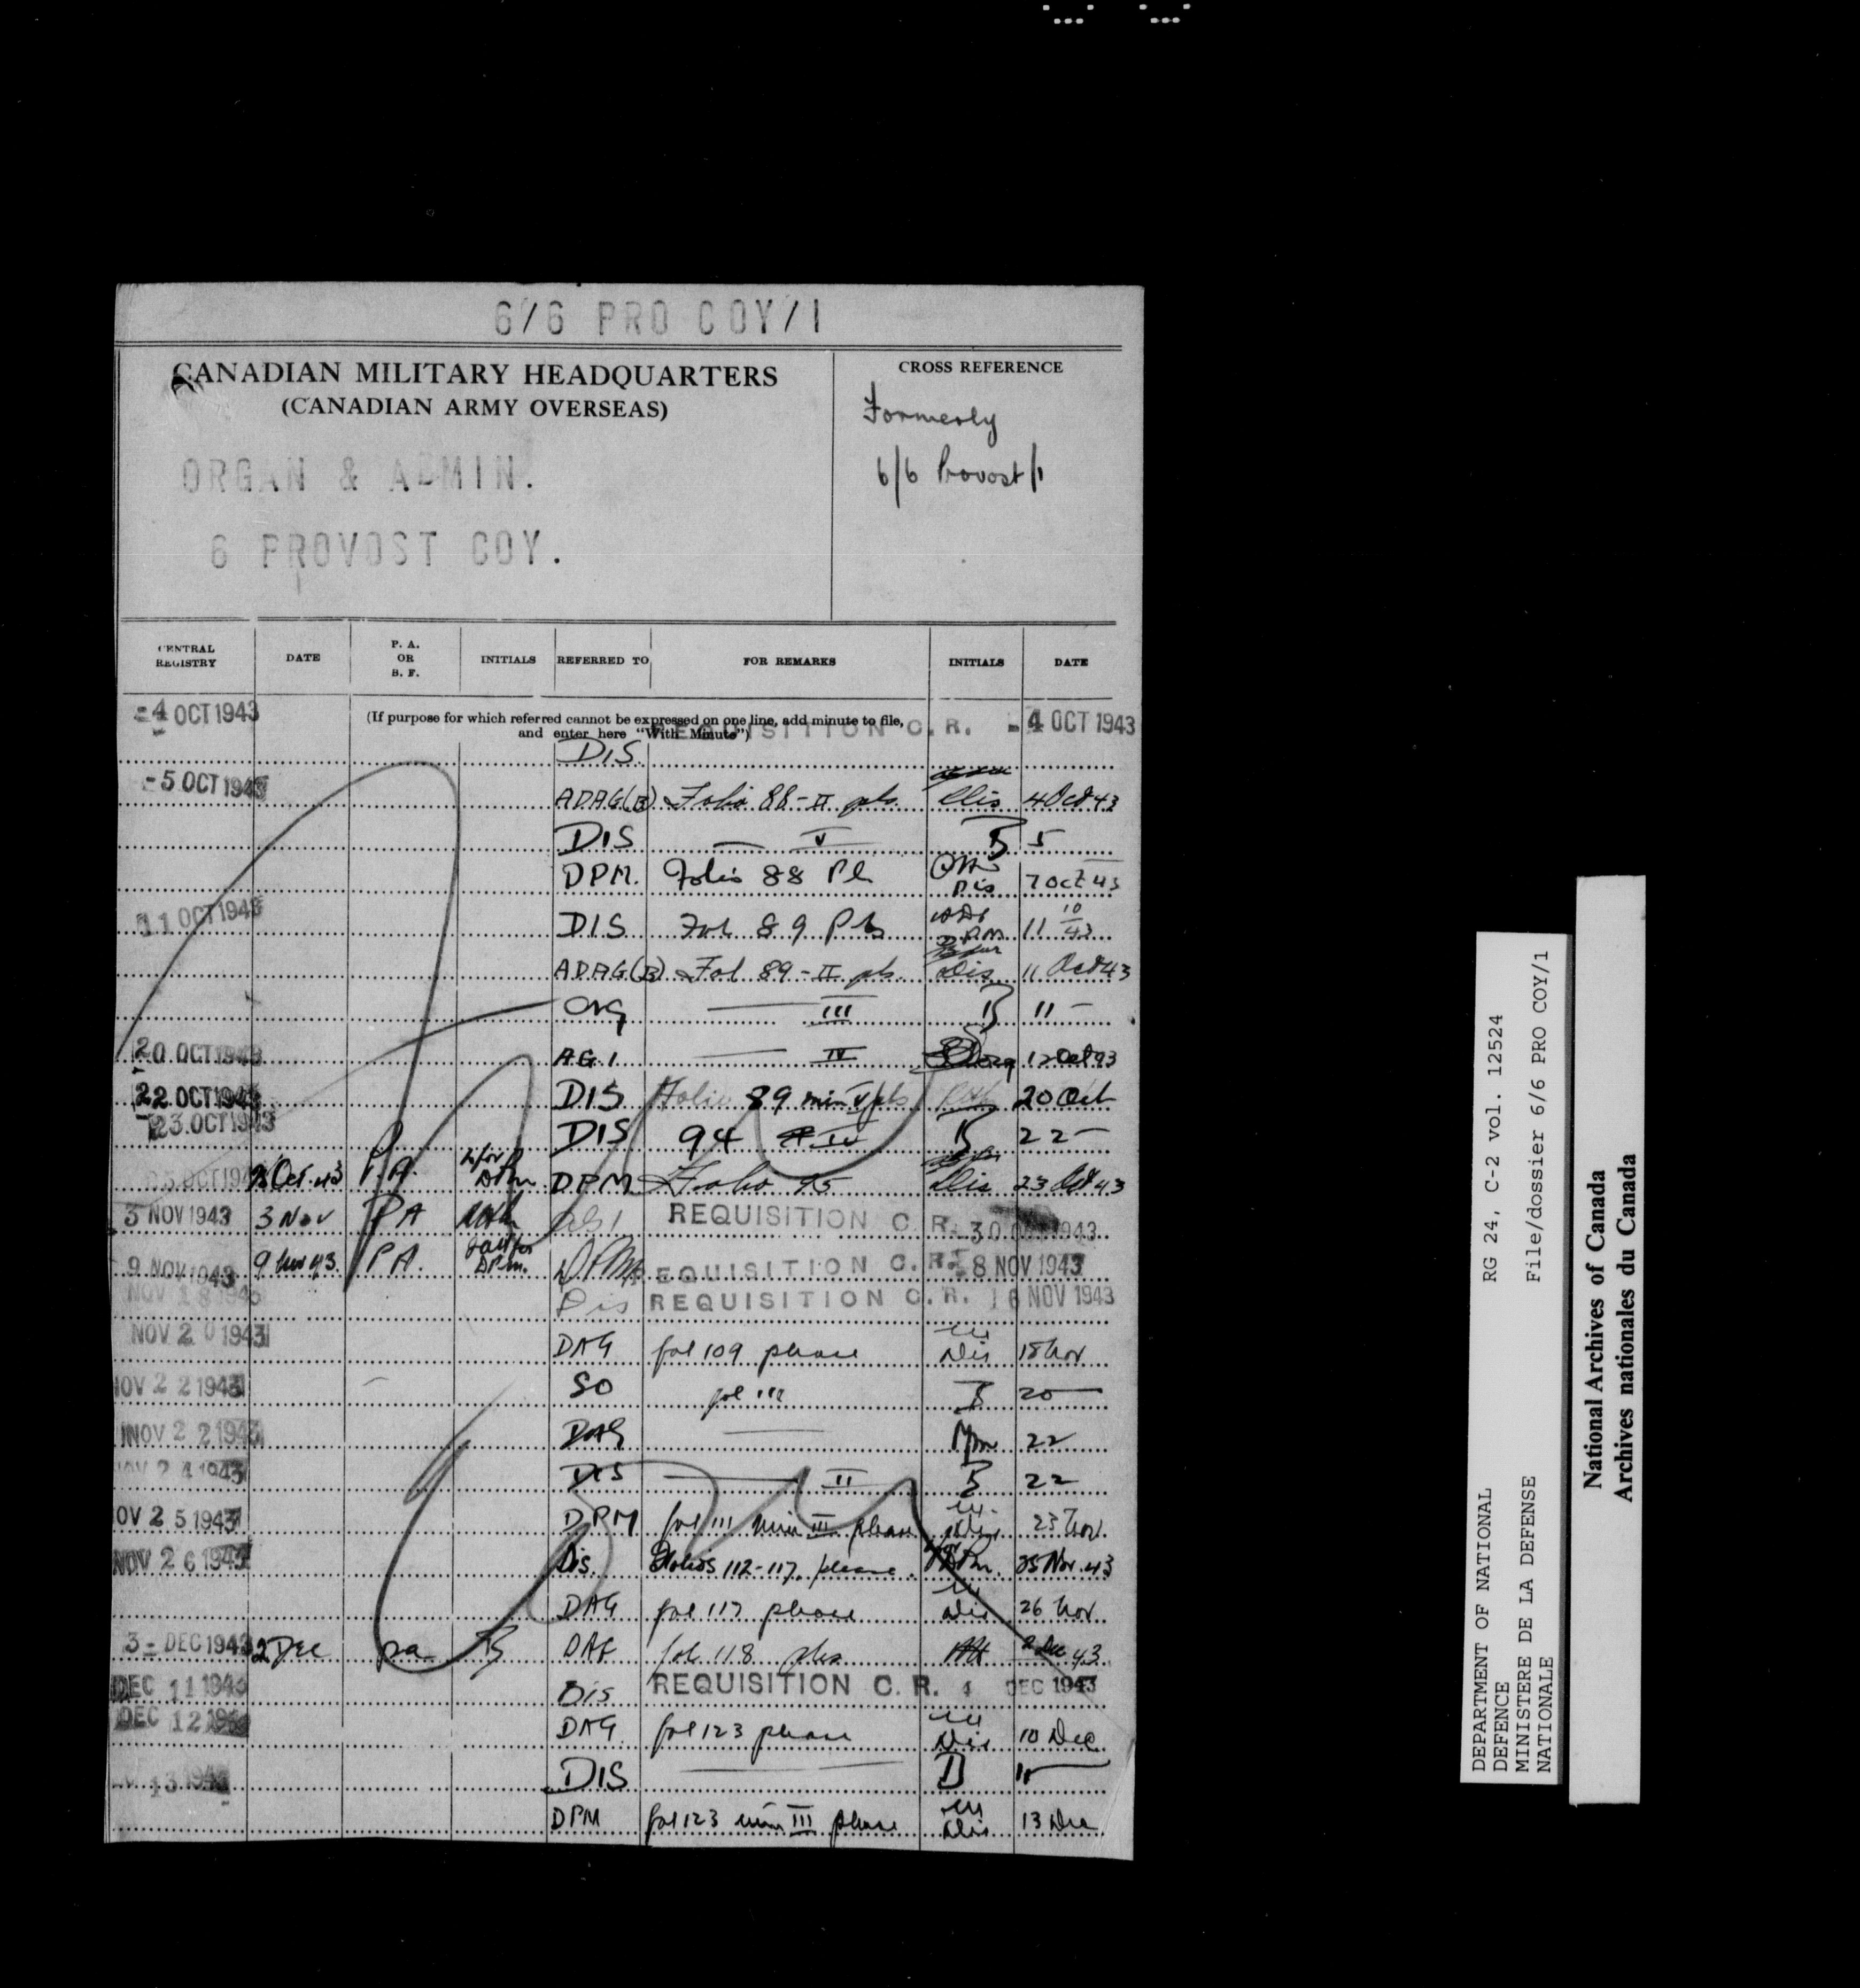 6/6 PRO COY/1
CANADIAN MILITARY HEADQUARTERS
(CANADIAN ARMY OVERSEAS)
CROSS REFERENCE
Formerly
6/6 Provost/1
ORGAN & ADMIN.
6 PROVOST COY.
CENTRAL REGISTRY DATE P. A. OR B. F. INITIALS REFERRED TO FOR REMARKS INITIALS DATE
(If purpose for which referred cannot be expressed on one line, add minute to file,
and enter here "With Minute")
-4 OCT 1943 DIS REQUISITION C. R. -4 OCT 1943
-5 OCT 1943 ADAG(B) Folio 88-II pls. Dis 4 Oct 43
DIS — V B 5
DPM. Folio 88 Pl Dis 7 Oct 43
11 OCT 1943 DIS Fol 89 Pls DPM 11 10/43
ADAG(B) Fol 89-II pls. Dis 11 Oct 43
Org — III B 11 —
20 OCT 1943 AG.1 — IV 12 Oct 43
22 OCT 1943 DIS Folio 89 min V pls 20 Oct
23 OCT 1943 DIS 94 IV B 22 —
25 OCT 1943 Oct. 43 P.A. DPM DPM Folio 95 Dis 23 Oct 43
3 NOV 1943 3 Nov PA AG1 REQUISITION C. R. 30 1943
9 NOV 1943 9 Nov 43. P.A. DPM. DPM REQUISITION C. R. -8 NOV 1943
NOV 18 1943 Dis REQUISITION C. R. 16 NOV 1943
NOV 20 1943 DAG fol 109 please Dis 18 Nov
NOV 22 1943 SO fol 111 B 20 —
NOV 22 1943 DAG — 22
NOV 24 1943 DIS — II B 22
NOV 25 1943 DPM fol 111 min III please Dis 23 Nov.
NOV 26 1943 Dis. Folios 112-117. please. DPM. 25 Nov. 43
DAG fol 117 please Dis 26 Nov
3 - DEC 1943 2 Dec pa B DAG fol 118 pls 2 Dec 43.
DEC 11 1943 Dis REQUISITION C. R. 4 DEC 1943
DEC 12 1943 DAG fol 123 please Dis 10 Dec
13 1943 DIS — B 11
DPM fol 123 min III please Dis 13 Dec
DEPARTMENT OF NATIONAL
DEFENCE
MINISTERE DE LA DEFENSE
NATIONALE
RG 24, C-2 vol. 12524
File/dossier 6/6 PRO COY/1
National Archives of Canada
Archives nationales du Canada